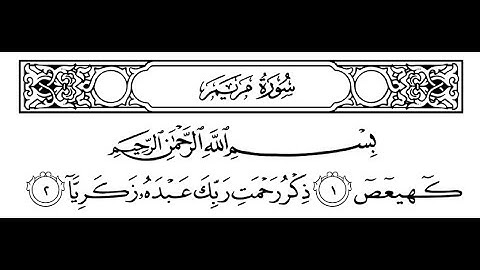 سُورَةُ مَرْيَمَ
بِسْمِ ٱللَّهِ ٱلرَّحْمَٰنِ ٱلرَّحِيمِ
كٓهيعٓصٓ ١ ذِكْرُ رَحْمَتِ رَبِّكَ عَبْدَهُۥ زَكَرِيَّآ ٢